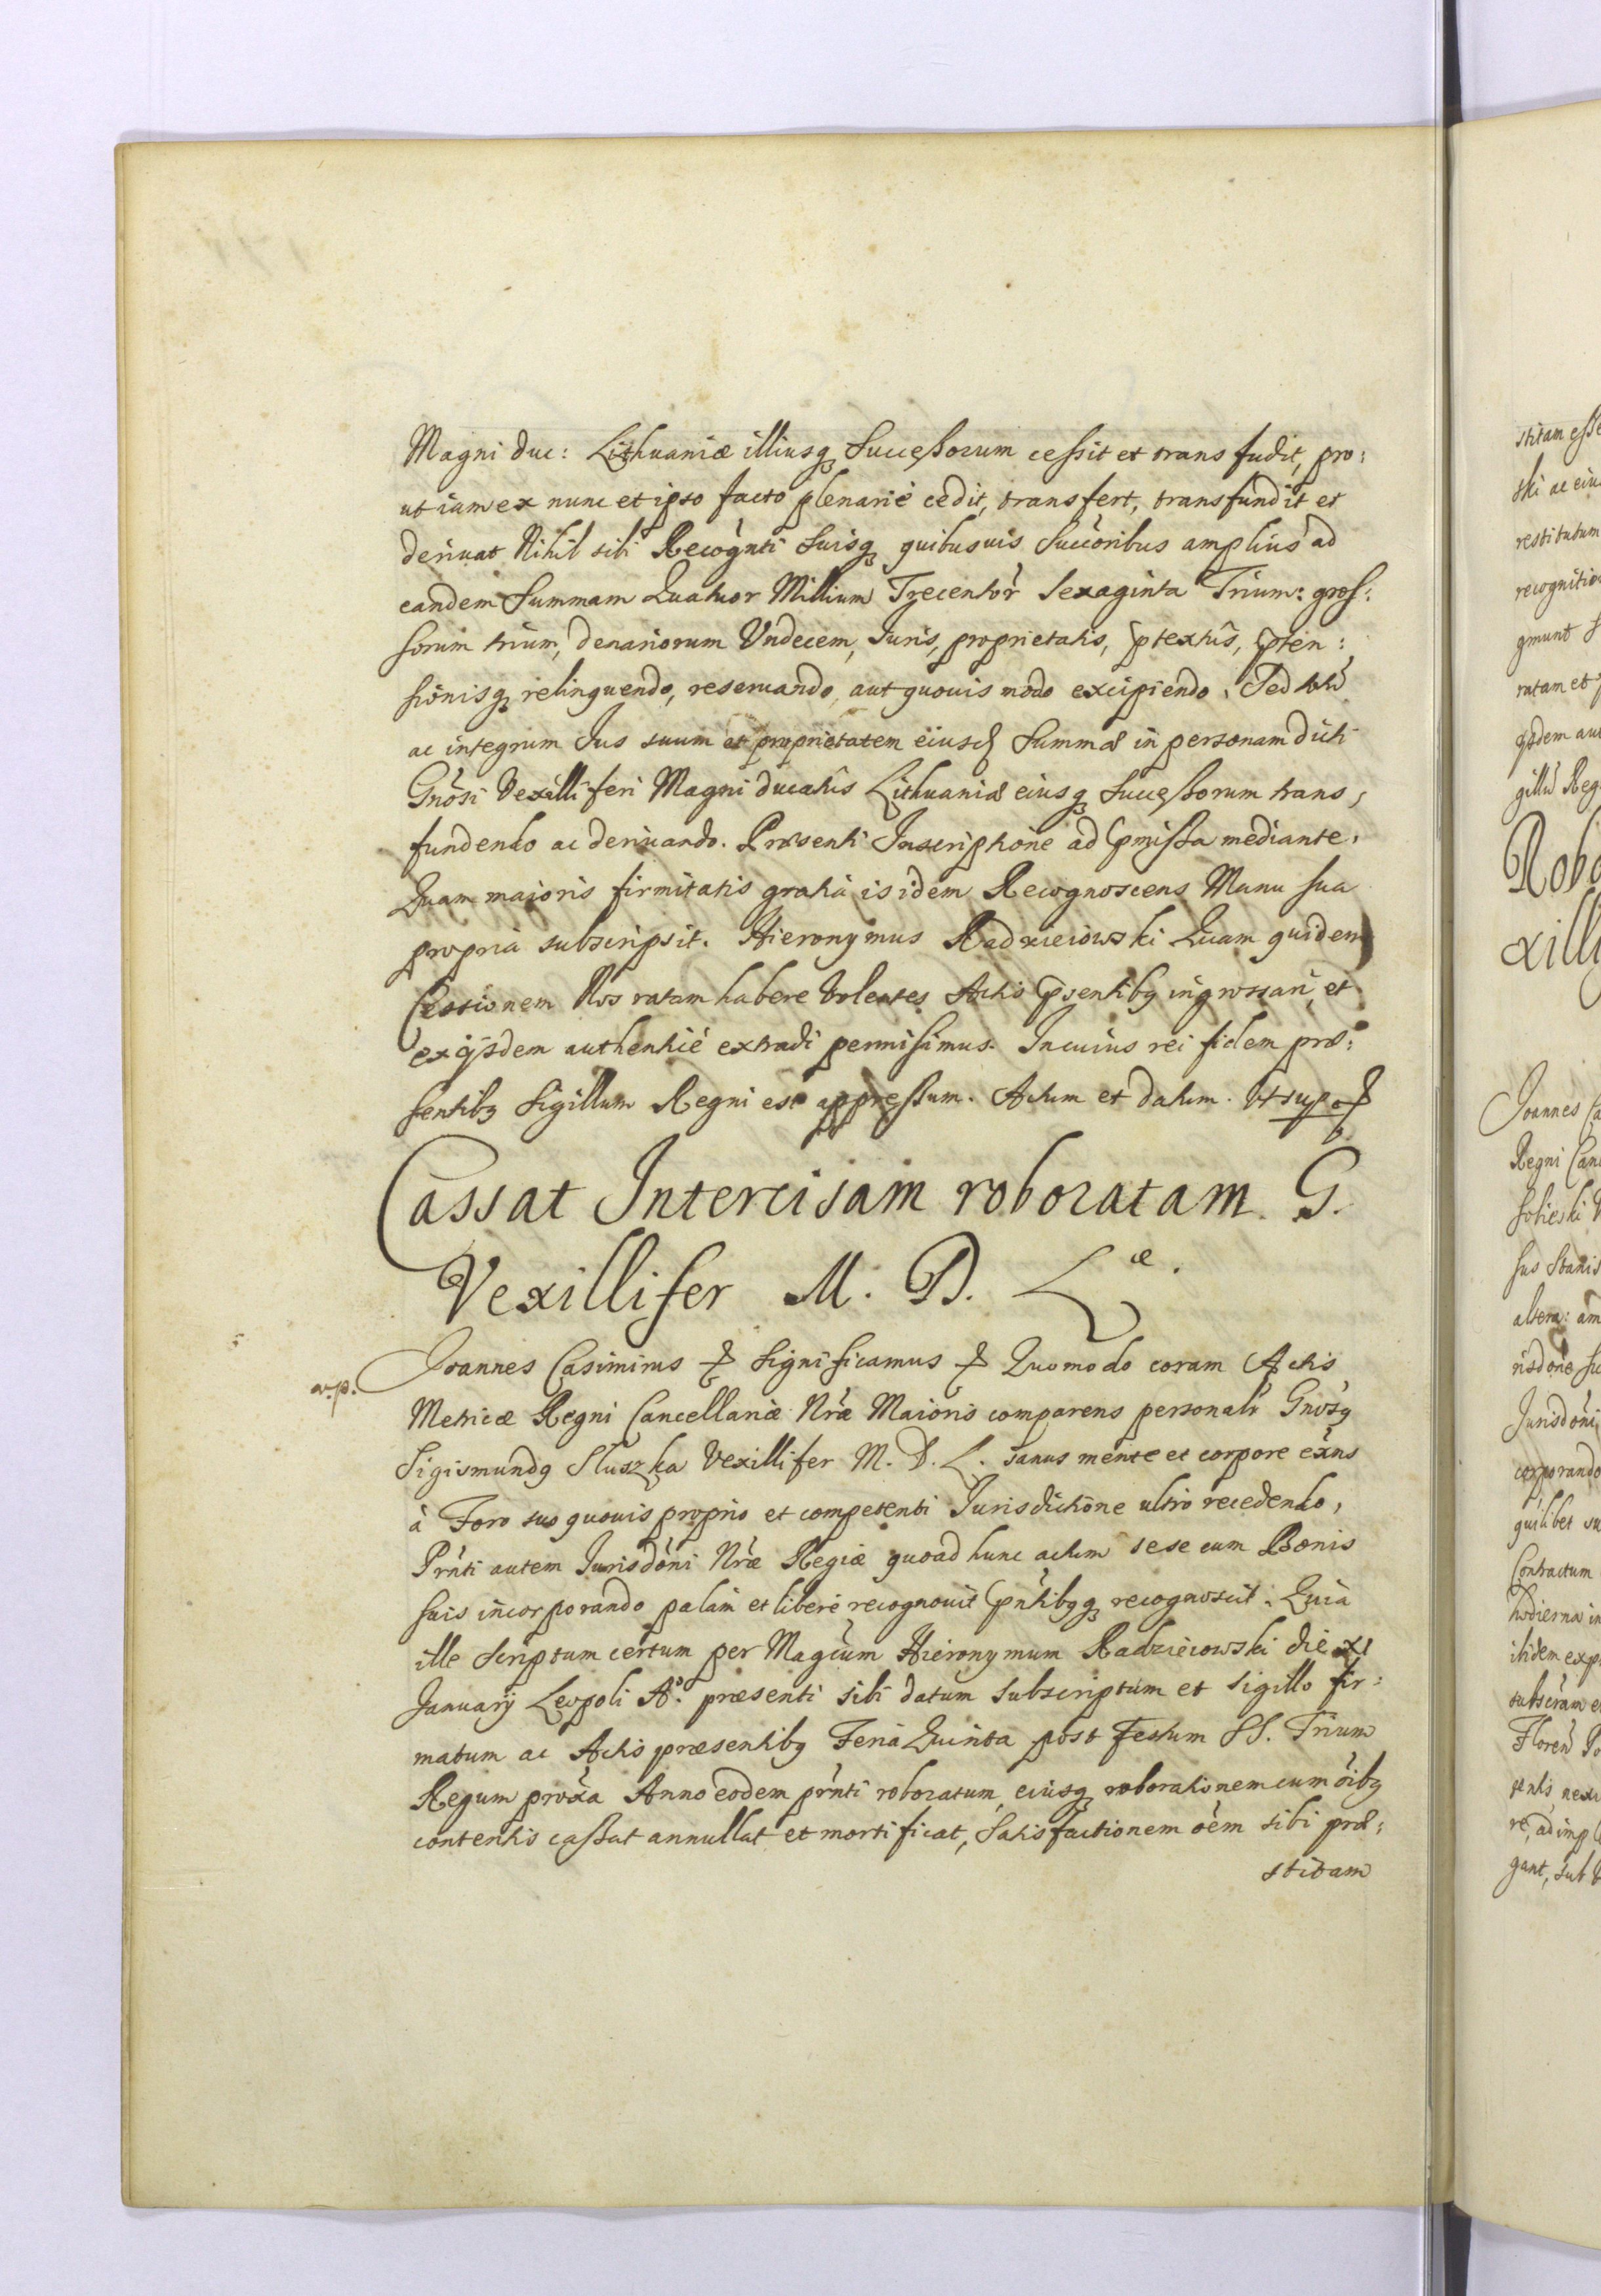 Magni Duc: Lithuaniæ illiusq₃ Successorum cessit et transfudit, pro:
ut iam ex nunc et ipso facto plenariè cedit, transfert, transfundit et
deriuat Nihil sibi Recogñti suisq₃ quibusuis Succoribus amplius ad
eandem Summam Quatuor Millium Trecentor̃ Sexaginta Trium: gros:
sorum trium, denariorum Vndecem, Iuris, proprietatis, ptextûs, pten:
sionisq₃ relinquendo, reseruando, aut quouis modo excipiendo. Sed totũ
ac integrum Ius suum et proprietatem eiusd Summæ in personam dicti
Gñosi Vexilliferi Magni ducatûs Lithuaniæ eiusq₃ Successorum trans,
fundendo ac deriuando. Præsenti Inscriptione ad pmissa mediante.
Quam maioris firmitatis gratiâ is idem Recognoscens Manu sua
propria subscripsit. Hieronymus Radzieiowski Quam quidem
Cessionem Nos ratam habere Volentes Actis psentibꝰ ingrossari, et
ex ijsdem authenticè extradi permisimus. In cuius rei fidem præ:
sentibꝰ Sigillum Regni est appressum. Actum et datum. Vt sup. &
Cassat Intercisam roboratam. G.
Vexillifer M. D. Lᵆ.
Joannes Casimirus & Significamus & Quomodo coram Actis
Metricæ Regni Cancellariæ Nræ Maioris comparens personalr Gnosꝰ
Sigismundꝰ Sluszka Vexillifer M. D. L. sanus mente et corpore exñs
à Foro suo quouis proprio et competenti Iurisdictione ultro recedendo,
Prñti autem Iurisdoni Nræ Regiæ quoad hunc actum sese cum Bonis
suis incorporando palam et liberè recognouit pñtibꝰq₃ recognoscit. Quia
ille Scriptum certum per Magcum Hieronymum Radzieiowski die XI
Januarij Leopoli A°. præsenti sibi datum subscriptum et sigillo fir:
matum ac Actis præsentibꝰ Feria Quinta post Festum SS. Trium
Regum proxa Anno eodem prñti roboratum, eiusq₃ roborationem cum oibꝰ
contentis cassat annullat et mortificat, Satisfactionem oem sibi præ:
stitam